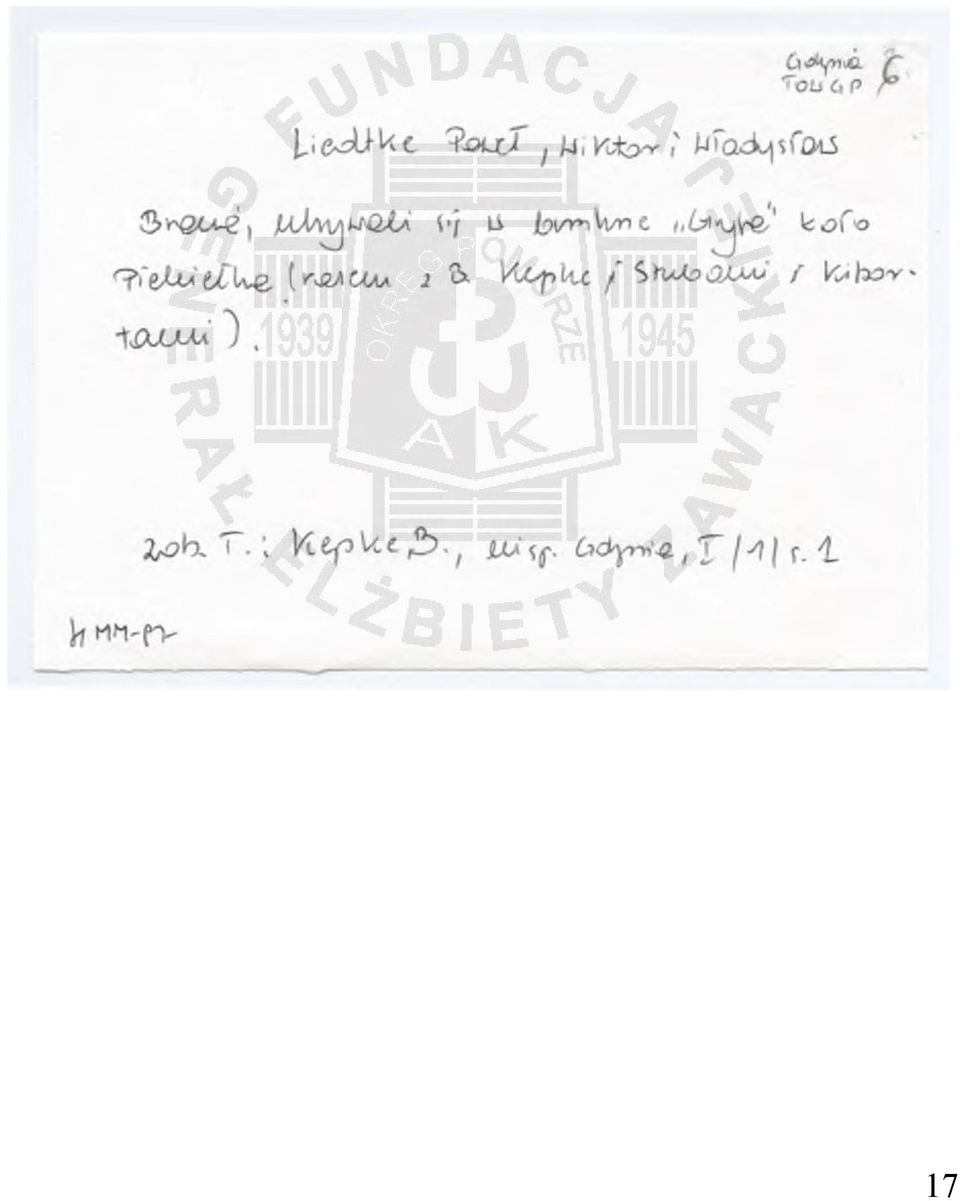 Gdynia 6
TOW GP
Liedtke Paweł, Wiktor i Władysław
Bracia, ukrywali się w bunkrze „Gryf” koło
Piekiełka (razem z B. Kepke i Skubami i Kibor-
tami).
zob. T.: Kepke B., Gdynia, I/1/ s. 1
MM-97
FUNDACJA GENERAŁ ELŻBIETY ZAWACKIEJ
OKRĘG POMORZE
1939 1945
AK
17